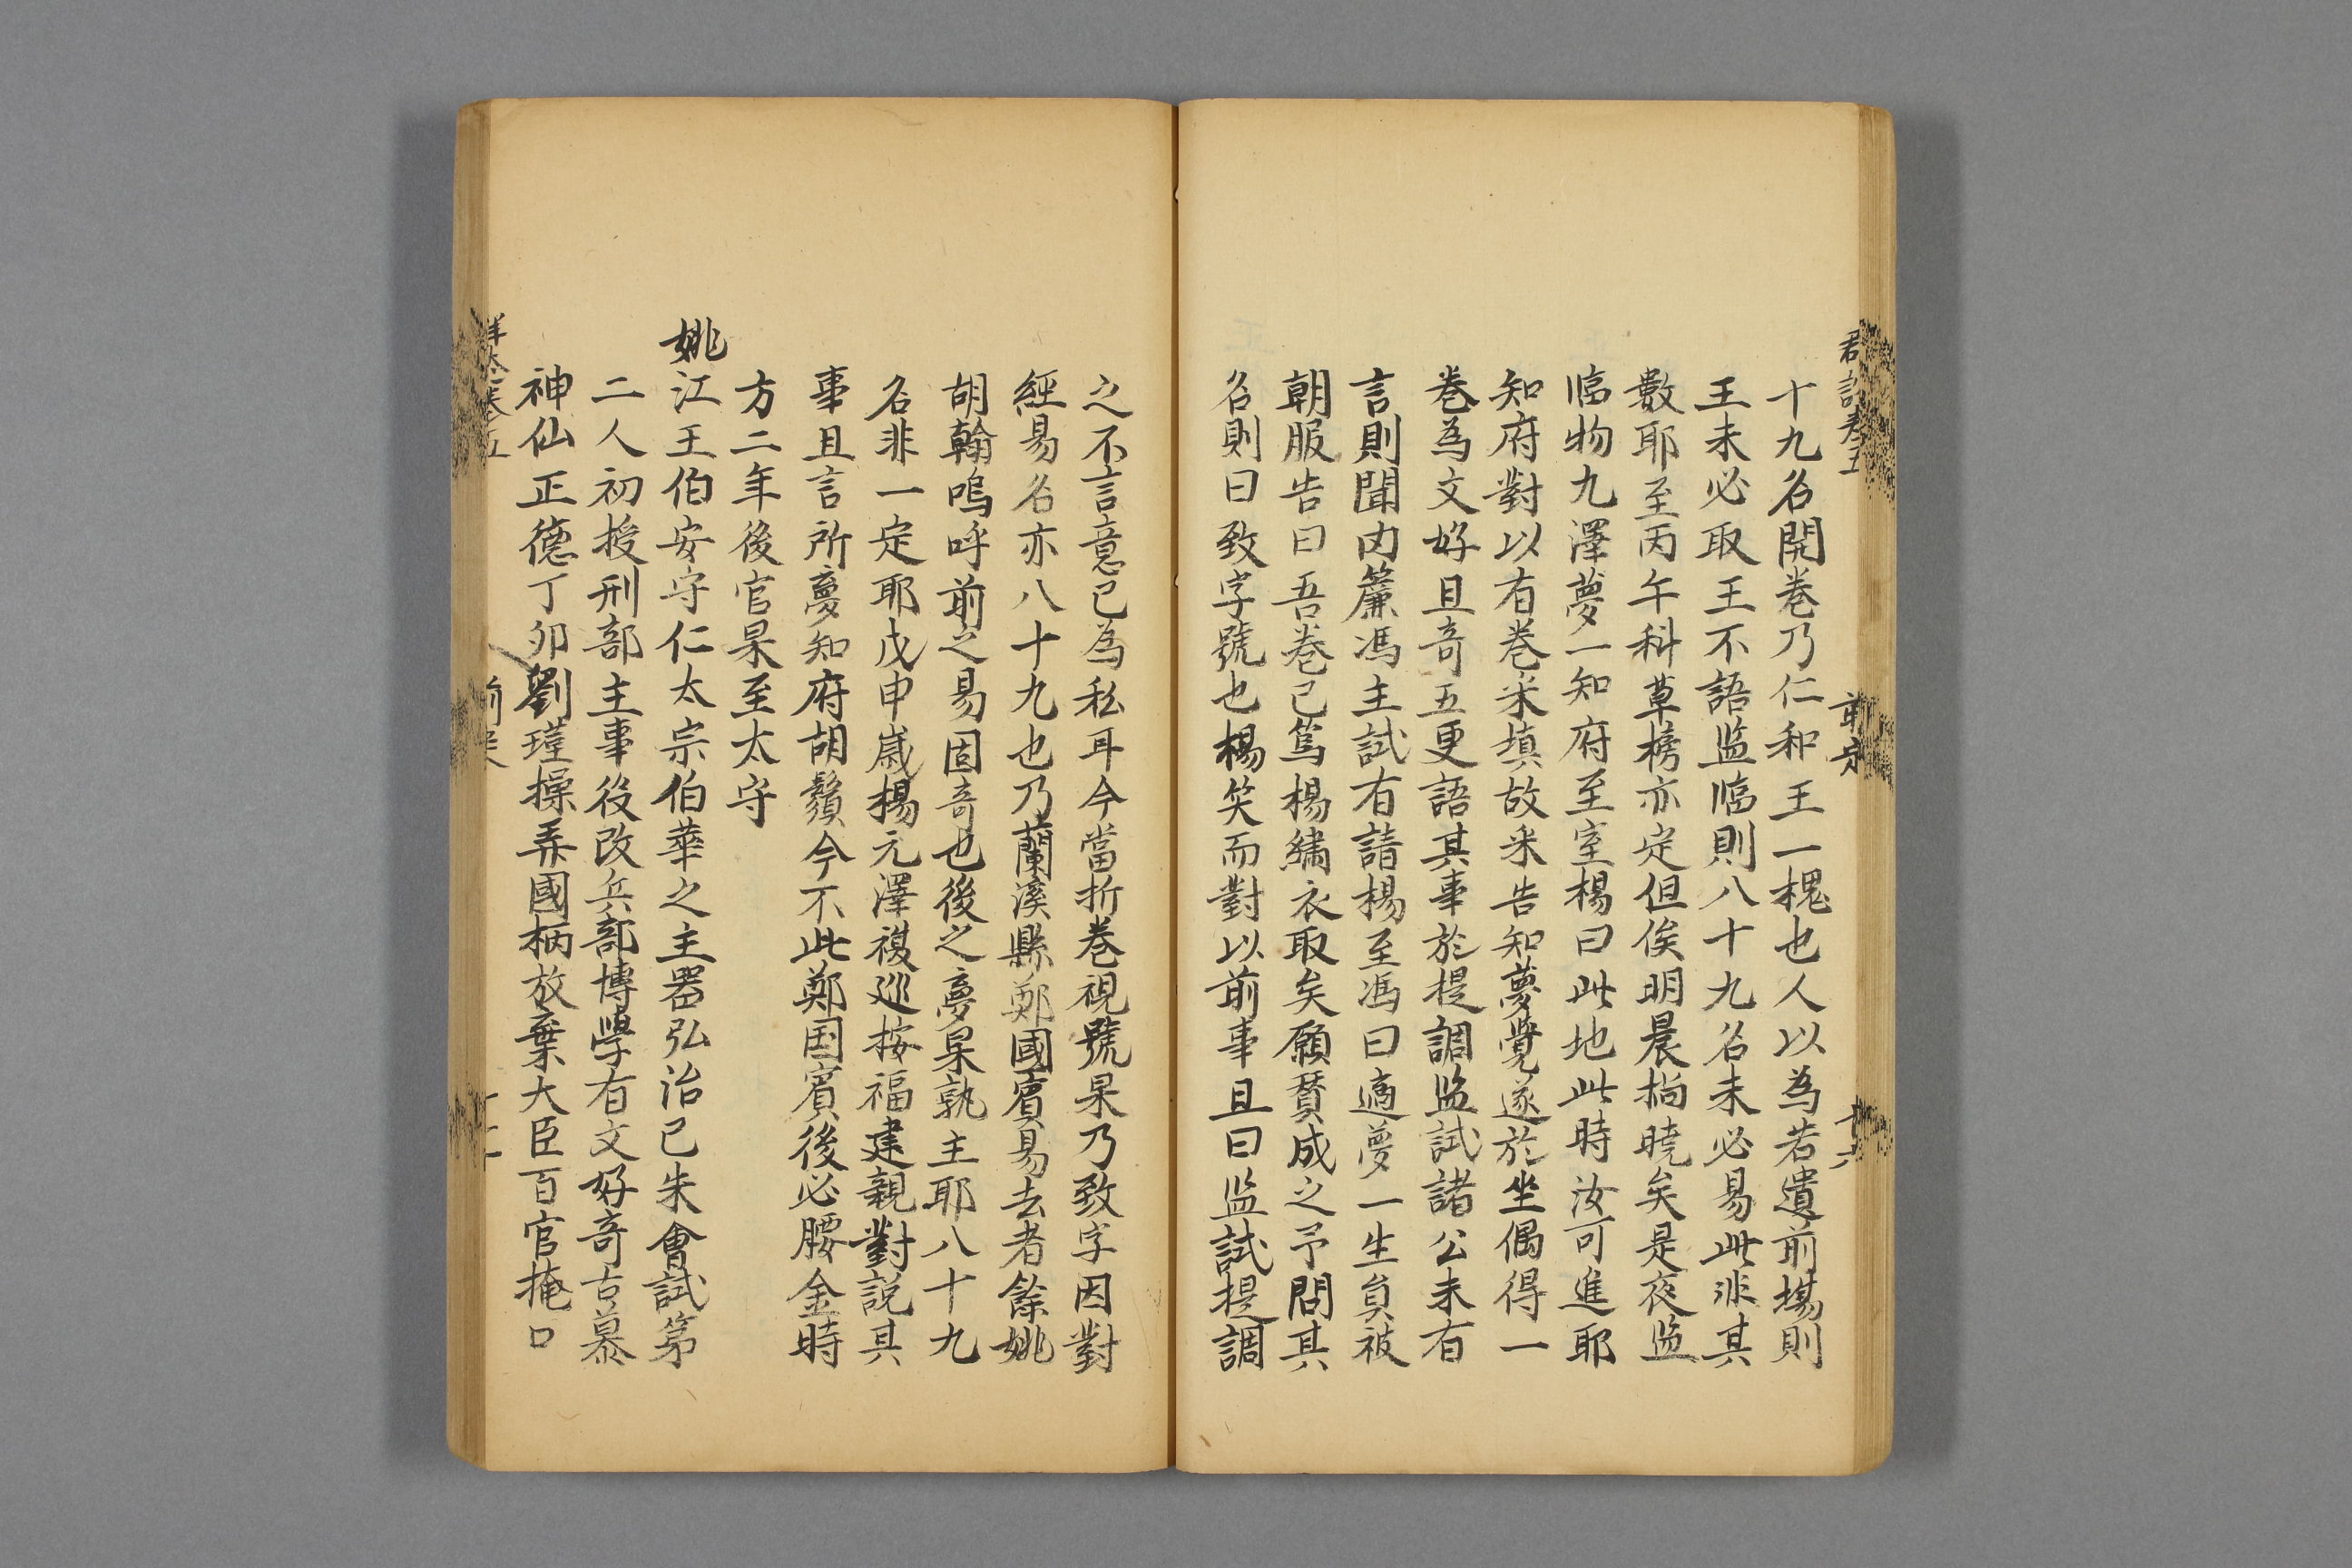 十九名開卷乃仁和王一槐也人以為若遺前塲則
王未必取王不語监臨則八十九名未必易此非其
數耶至丙午科草榜亦定但俟明晨揭曉矣是夜监
臨物九澤夢一知府至室楊曰此地此時汝可進耶
知府對以有卷未填故来告知夢覺遂於坐偶得一
卷為文好且竒五更語其事於提調监試諸公未有
言則聞内簾馮主試有請楊至馮曰適夢一生員被
朝服告曰吾卷已篤楊繡衣取矣願賛成之予問其
名則曰致字號也楊笑而對以前事且曰监試提調
之不言意已為私耳今當折卷視號果乃致字因對
經易名亦八十九也乃蘭溪縣鄭國賓易去者餘姚
胡翰嗚呼前之易固竒也後之夢果孰主耶八十九
名非一定耶戊申嵗楊元澤複廵按福建親對説其
事且言所夢知府胡鬚今不此鄭国賓後必腰金時
方二年後官果至太守
姚江王伯安守仁太宗伯華之主器弘治己朱會試第
二人初授刑部主事後改兵部博學有文好奇古慕
神仙正德丁卯劉瑾操弄國柄放棄大臣百官掩口
前定